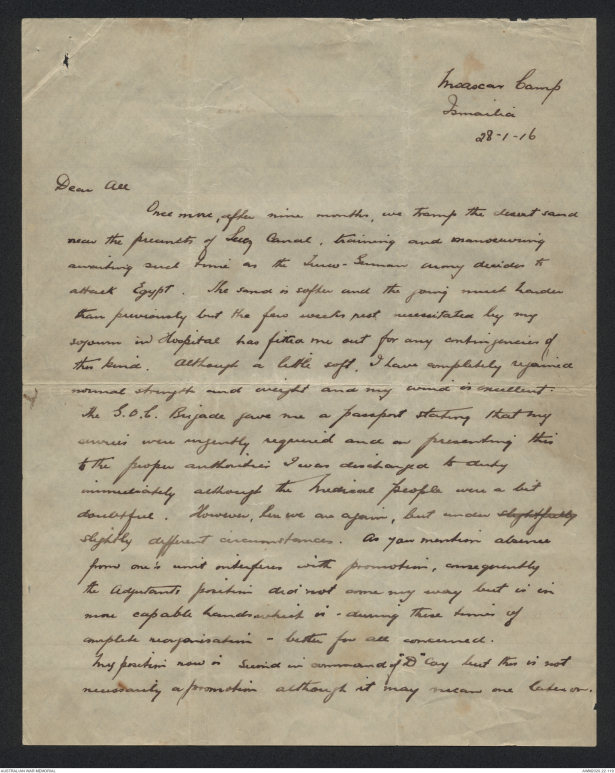 Moascar Camp
Ismailia
28-1-16
Dear All
Once more, after nine months, we tramp the desert sand
near the precincts of Suez Canal, training and manoeuvring
awaiting such time as the Turco-German army decides to
attack Egypt. The sand is softer and the going much harder
than previously but the few weeks rest necessitated by my
sojourn in Hospital has fitted me out for any contingencies of
this kind. Although a little soft, I have completely regained
normal strength and weight and my wind is excellent.
The G.O.C. Brigade gave me a passport stating that my
services were urgently required and on presenting this
to the proper authorities I was discharged to duty
immediately although the Medical people were a bit
doubtful. However, here we are again, but under slightfully
slightly different circumstances. As you mention absence
from one's unit interferes with promotion, consequently
the Adjutants position did not come my way but is in
more capable hands which is - during these times of
complete reorganisation - better for all concerned.
My position now is Second in command of "D" Coy but this is not
necessarily a promotion although it may mean one later on.
AUSTRALIAN WAR MEMORIAL